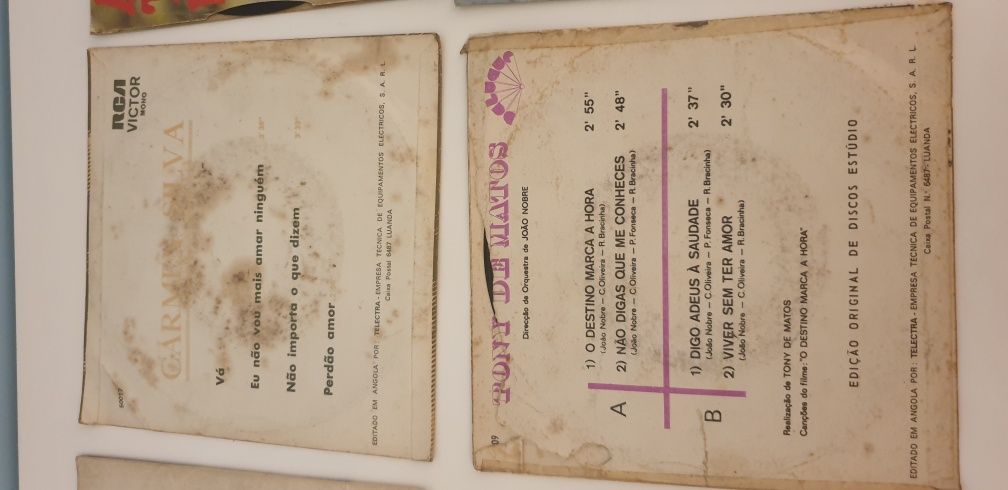 60017
RCA
VICTOR
MONO
CARMEN SILVA
Vá
Eu não vou mais amar ninguém
Não importa o que dizem
Perdão amor
EDITADO EM ANGOLA POR: TELECTRA - EMPRESA TÉCNICA DE EQUIPAMENTOS ELÉCTRICOS, S. A. R. L.
Caixa Postal 6487 LUANDA
09
TONY DE MATOS
Direcção de Orquestra de JOÃO NOBRE
A
1) O DESTINO MARCA A HORA 2' 55"
(João Nobre – C.Oliveira – R. Bracinha)
2) NÃO DIGAS QUE ME CONHECES 2' 48"
(João Nobre – C.Oliveira – P. Fonseca – R. Bracinha)
B
1) DIGO ADEUS À SAUDADE 2' 37"
(João Nobre – C.Oliveira – P. Fonseca – R. Bracinha)
2) VIVER SEM TER AMOR 2' 30"
(João Nobre – C.Oliveira – R. Bracinha)
Realização de TONY DE MATOS
Canções do filme: "O DESTINO MARCA A HORA"
EDIÇÃO ORIGINAL DE DISCOS ESTÚDIO
EDITADO EM ANGOLA POR: TELECTRA - EMPRESA TÉCNICA DE EQUIPAMENTOS ELÉCTRICOS, S. A. R. L.
Caixa Postal N.º 6487 - LUANDA